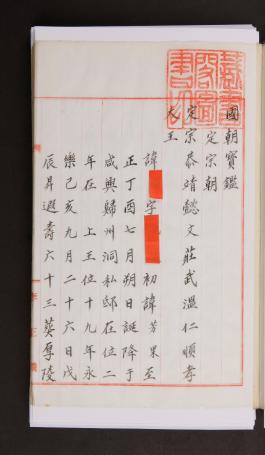 國朝寶鑑
定宗朝
定宗恭靖懿文莊武溫仁順孝
大王
諱 字 初諱芳果至
正丁酉七月朔日誕降于
咸興歸州洞私邸在位二
年在上王位十九年永
樂己亥九月二十六日戊
辰昇遐壽六十三葬厚陵